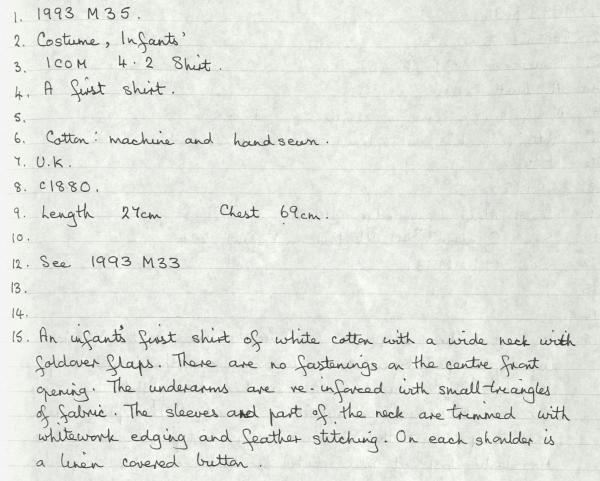 1. 1993 M35.
2. Costume, Infants'
3. ICOM 4.2 Shirt.
4. A first shirt.
5.
6. Cotton: machine and hand sewn.
7. U.K.
8. c1880.
9. Length 27cm Chest 69cm.
10.
12. See 1993 M33
13.
14.
15. An infant's first shirt of white cotton with a wide neck with
foldover flaps. There are no fastenings on the centre front
opening. The underarms are re-inforced with small triangles
of fabric. The sleeves and part of the neck are trimmed with
whitework edging and feather stitching. On each shoulder is
a linen covered button.